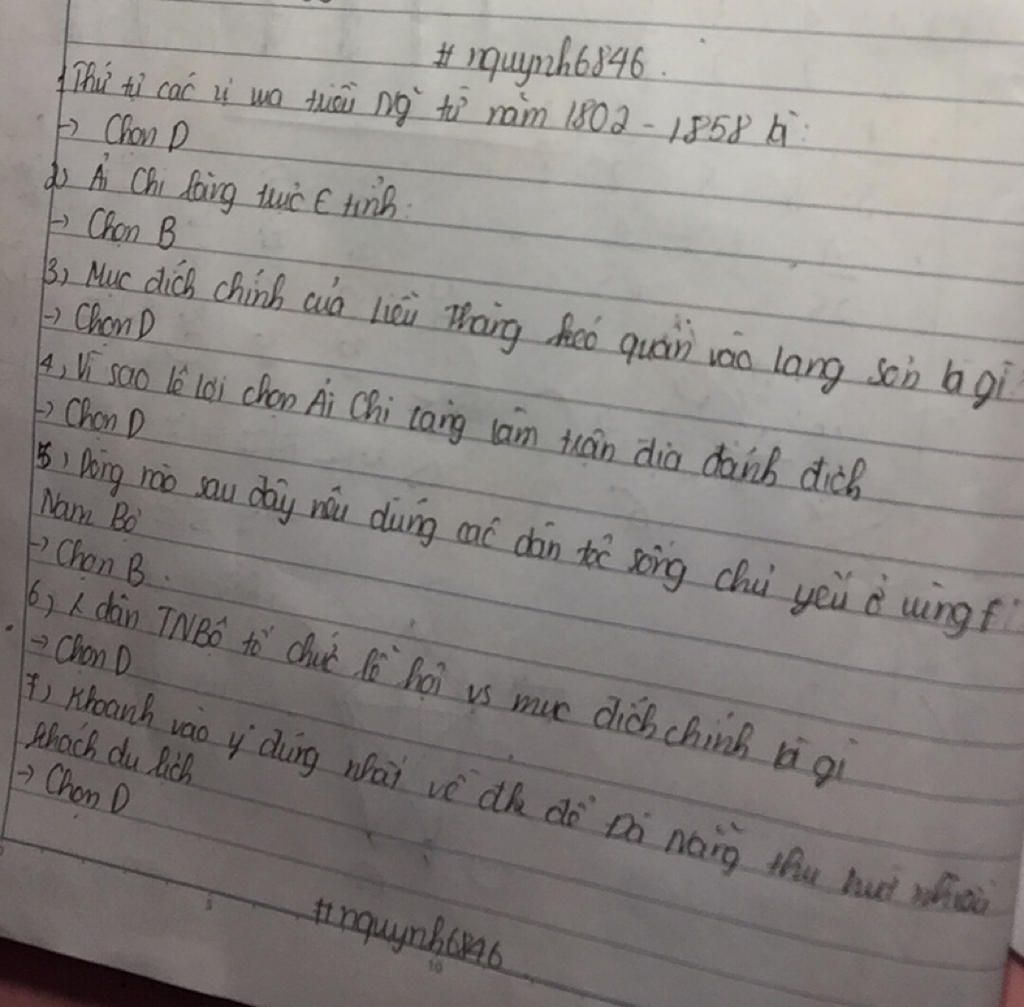 #nquynh6846.
1, Thứ tự các vị vua triều Ng~ từ năm 1802 - 1858 là:
-> Chọn D
2) Ải Chi Lăng thuộc tỉnh:
-> Chọn B
3, Mục đích chính của Liễu Thăng kéo quân vào lạng sơn là gì
-> Chọn D
4, Vì sao lê lợi chọn Ải Chi lăng làm trận địa đánh địch
-> Chọn D
5, Dòng nào sau đây nêu đúng các dân tộc sống chủ yếu ở vùng
Nam Bộ
-> Chọn B.
6, dân TNBộ tổ chức lễ hội vs mục đích chính là gì
-> Chọn D
7, Khoanh vào ý đúng nhất về đk để Đà Nẵng thu hút nhiều
khách du lịch
-> Chọn D
#nquynh6846
10